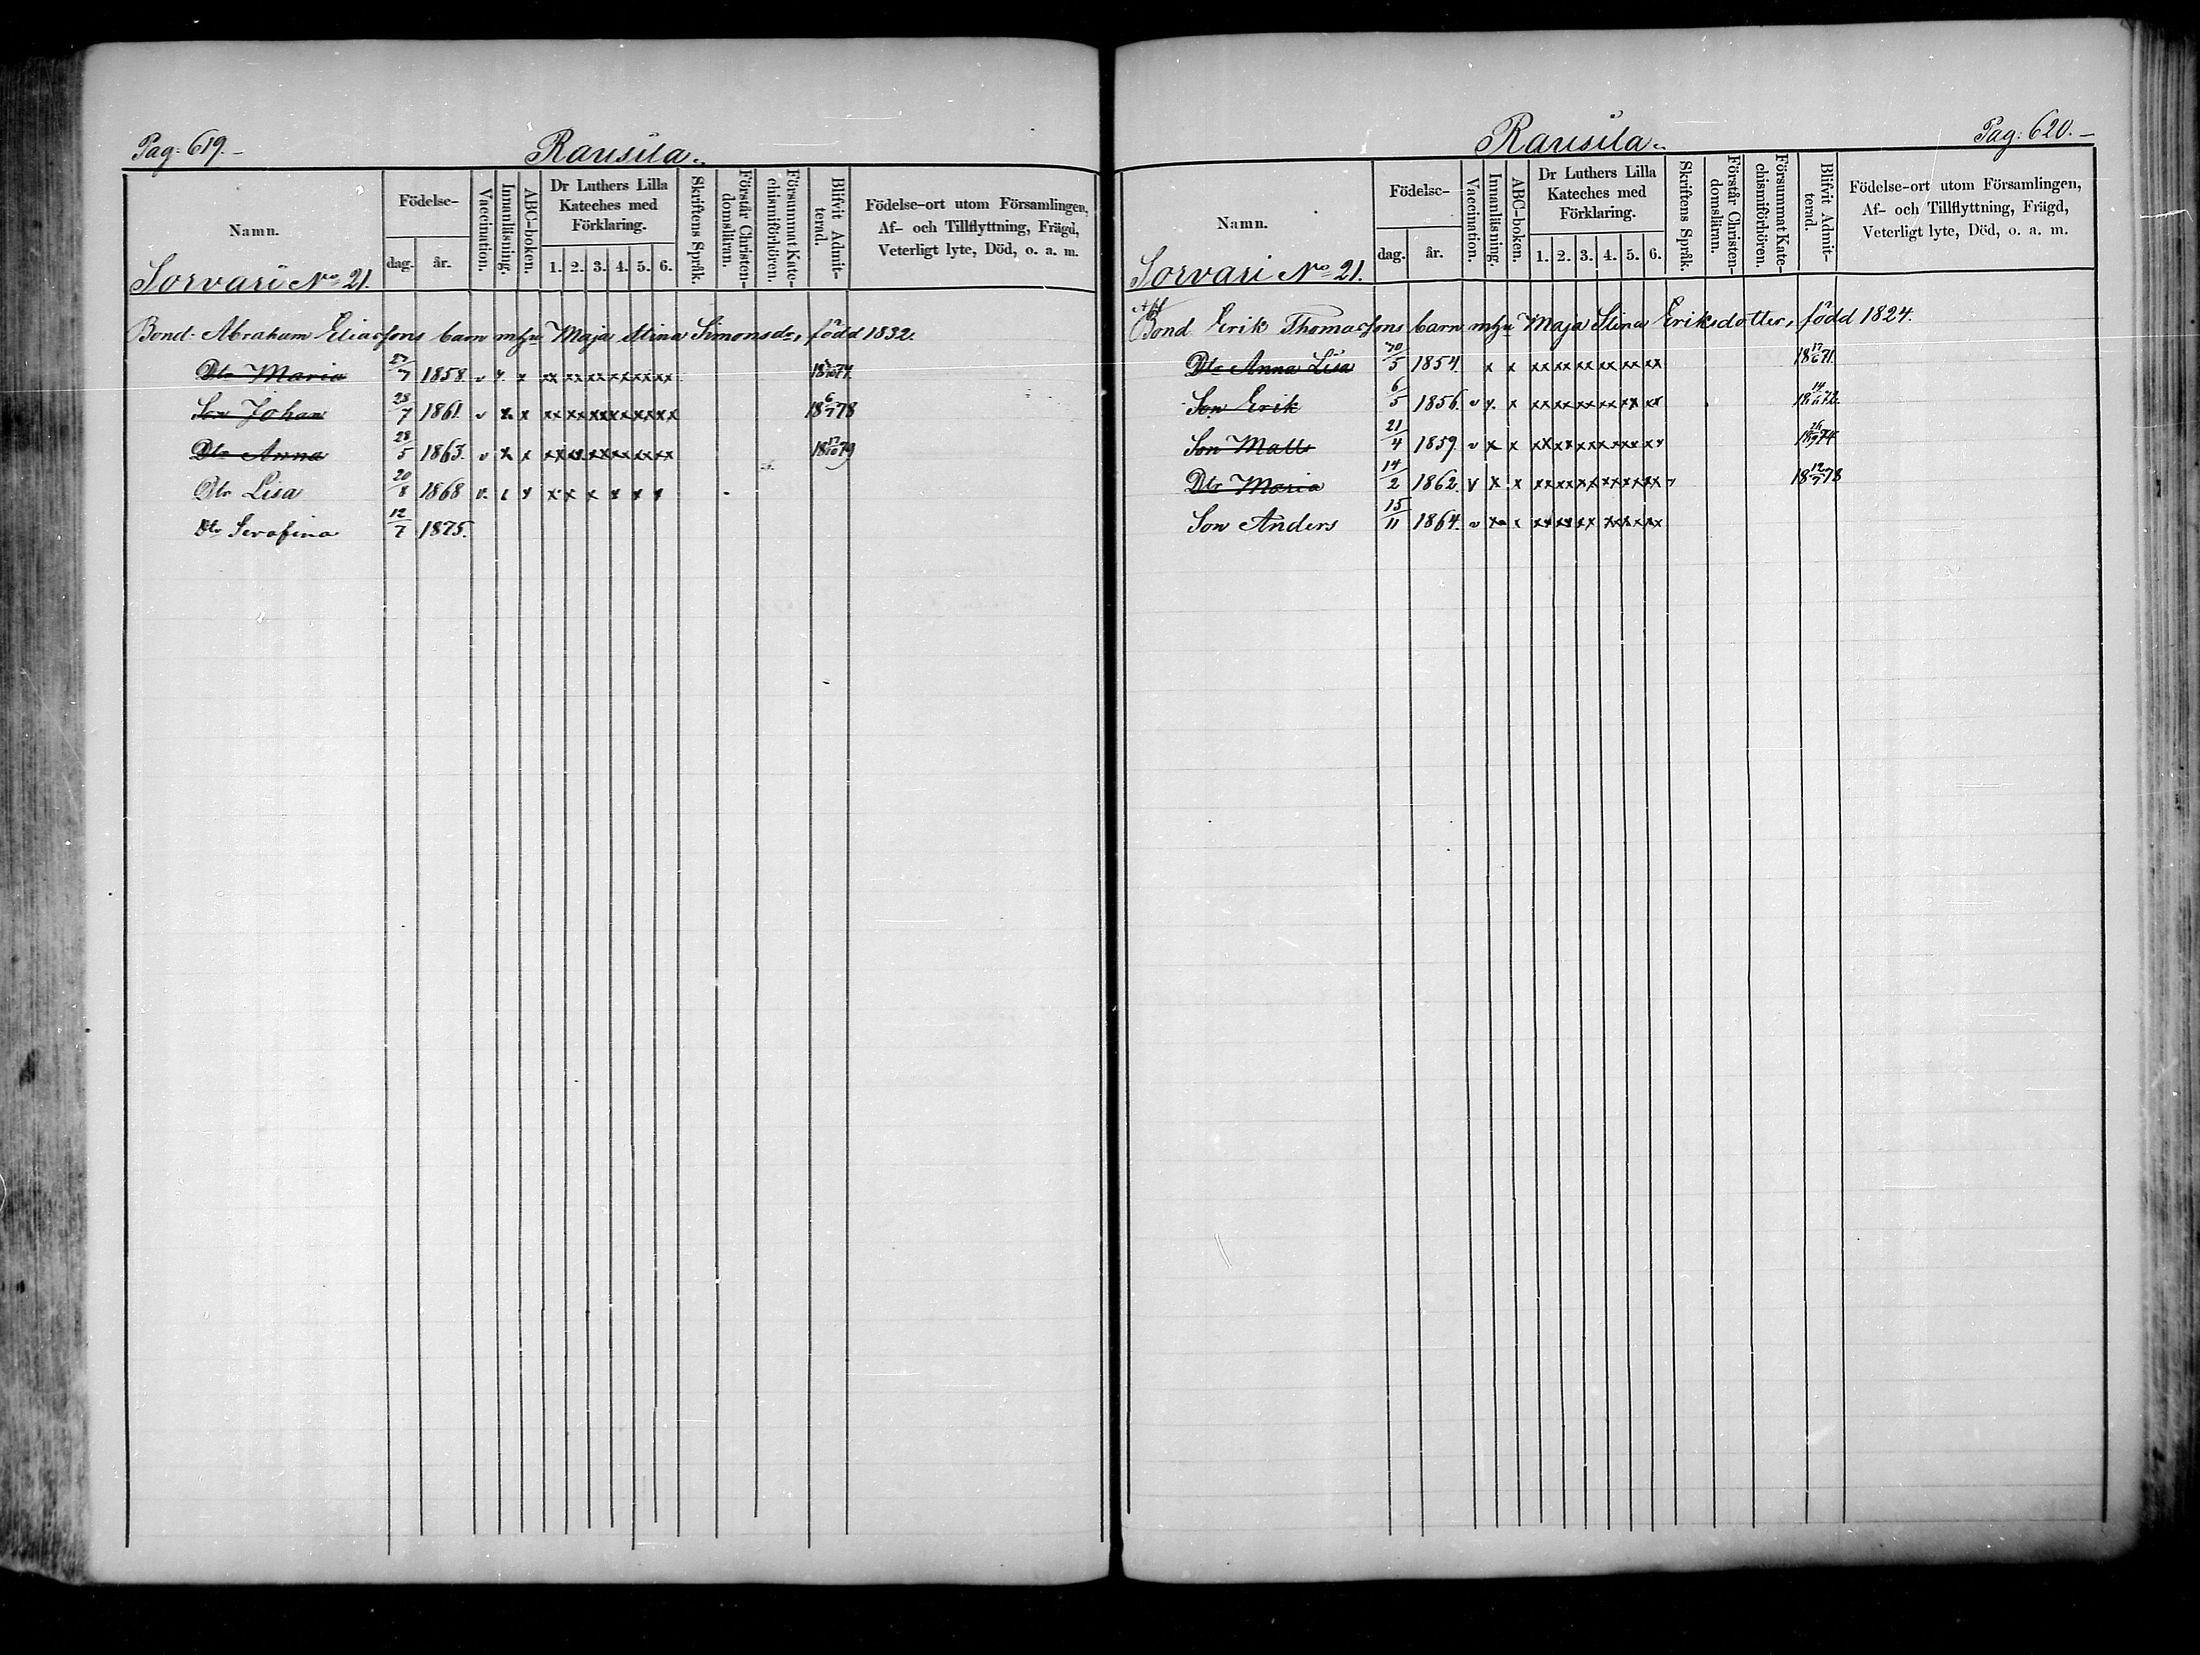 Pag: 619.
Rausila.
Namn.
Födelse-
dag. år.
Vaccination.
Innanläsning.
ABC-boken.
Dr Luthers Lilla Kateches med Förklaring.
1. 2. 3. 4. 5. 6.
Skriftens Språk.
Förstår Christendomsläran.
Försummat Katechismiförhören.
Blifvit Admitterad.
Födelse-ort utom Församlingen,
Af- och Tillflyttning, Frägd,
Veterligt lyte, Död, o. a. m.
Sorvari No 21.
Bond. Abraham Eliassons barn m hu Maja Stina Simonsdr, född 1832.
Dtr Maria 27/7 1858. v x x xx xx xx xx xx xx
Son Johan 28/7 1861. v x x xx xx xx xx xx xx 18 6/7 78
Dtr Anna 28/5 1863. v x x xx xx xx xx xx xx 18 17/10 79
Dtr Lisa 20/8 1868 v. x x x x x x x
Dtr Serafina 12/7 1875.
Pag: 620.
Rausila.
Namn.
Födelse-
dag. år.
Vaccination.
Innanläsning.
ABC-boken.
Dr Luthers Lilla Kateches med Förklaring.
1. 2. 3. 4. 5. 6.
Skriftens Språk.
Förstår Christendomsläran.
Försummat Katechismiförhören.
Blifvit Admitterad.
Födelse-ort utom Församlingen,
Af- och Tillflyttning, Frägd,
Veterligt lyte, Död, o. a. m.
Sorvari No 21.
Bond. Erik Thomassons barn m hu Maja Stina Eriksdotter, född 1824.
Dtr Anna Lisa /5 1854. x x xx xx xx xx xx xx 18 17/6 71.
Son Erik 6/5 1856. v x x xx xx xx xx xx xx 18 72.
Son Matts 21/4 1859. v x x xx xx xx xx xx xx 18 26/9 74
Dtr Maria 14/2 1862. v x x xx xx xx xx xx xx 18 12/7 78
Son Anders 15/11 1864. v x x xx xx xx xx xx xx